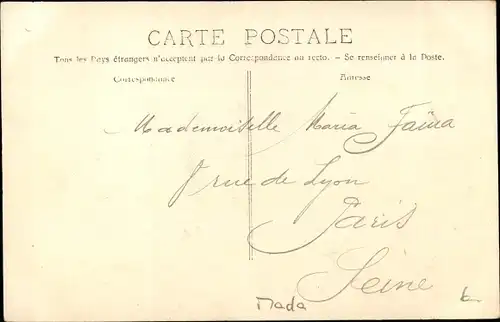 CARTE POSTALE
Tous les Pays étrangers n'acceptent pas la Correspondance au recto. - Se renseigner à la Poste.
Correspondance
Adresse
Mademoiselle Maria Faïna
8 rue de Lyon
Paris
Seine
Mada